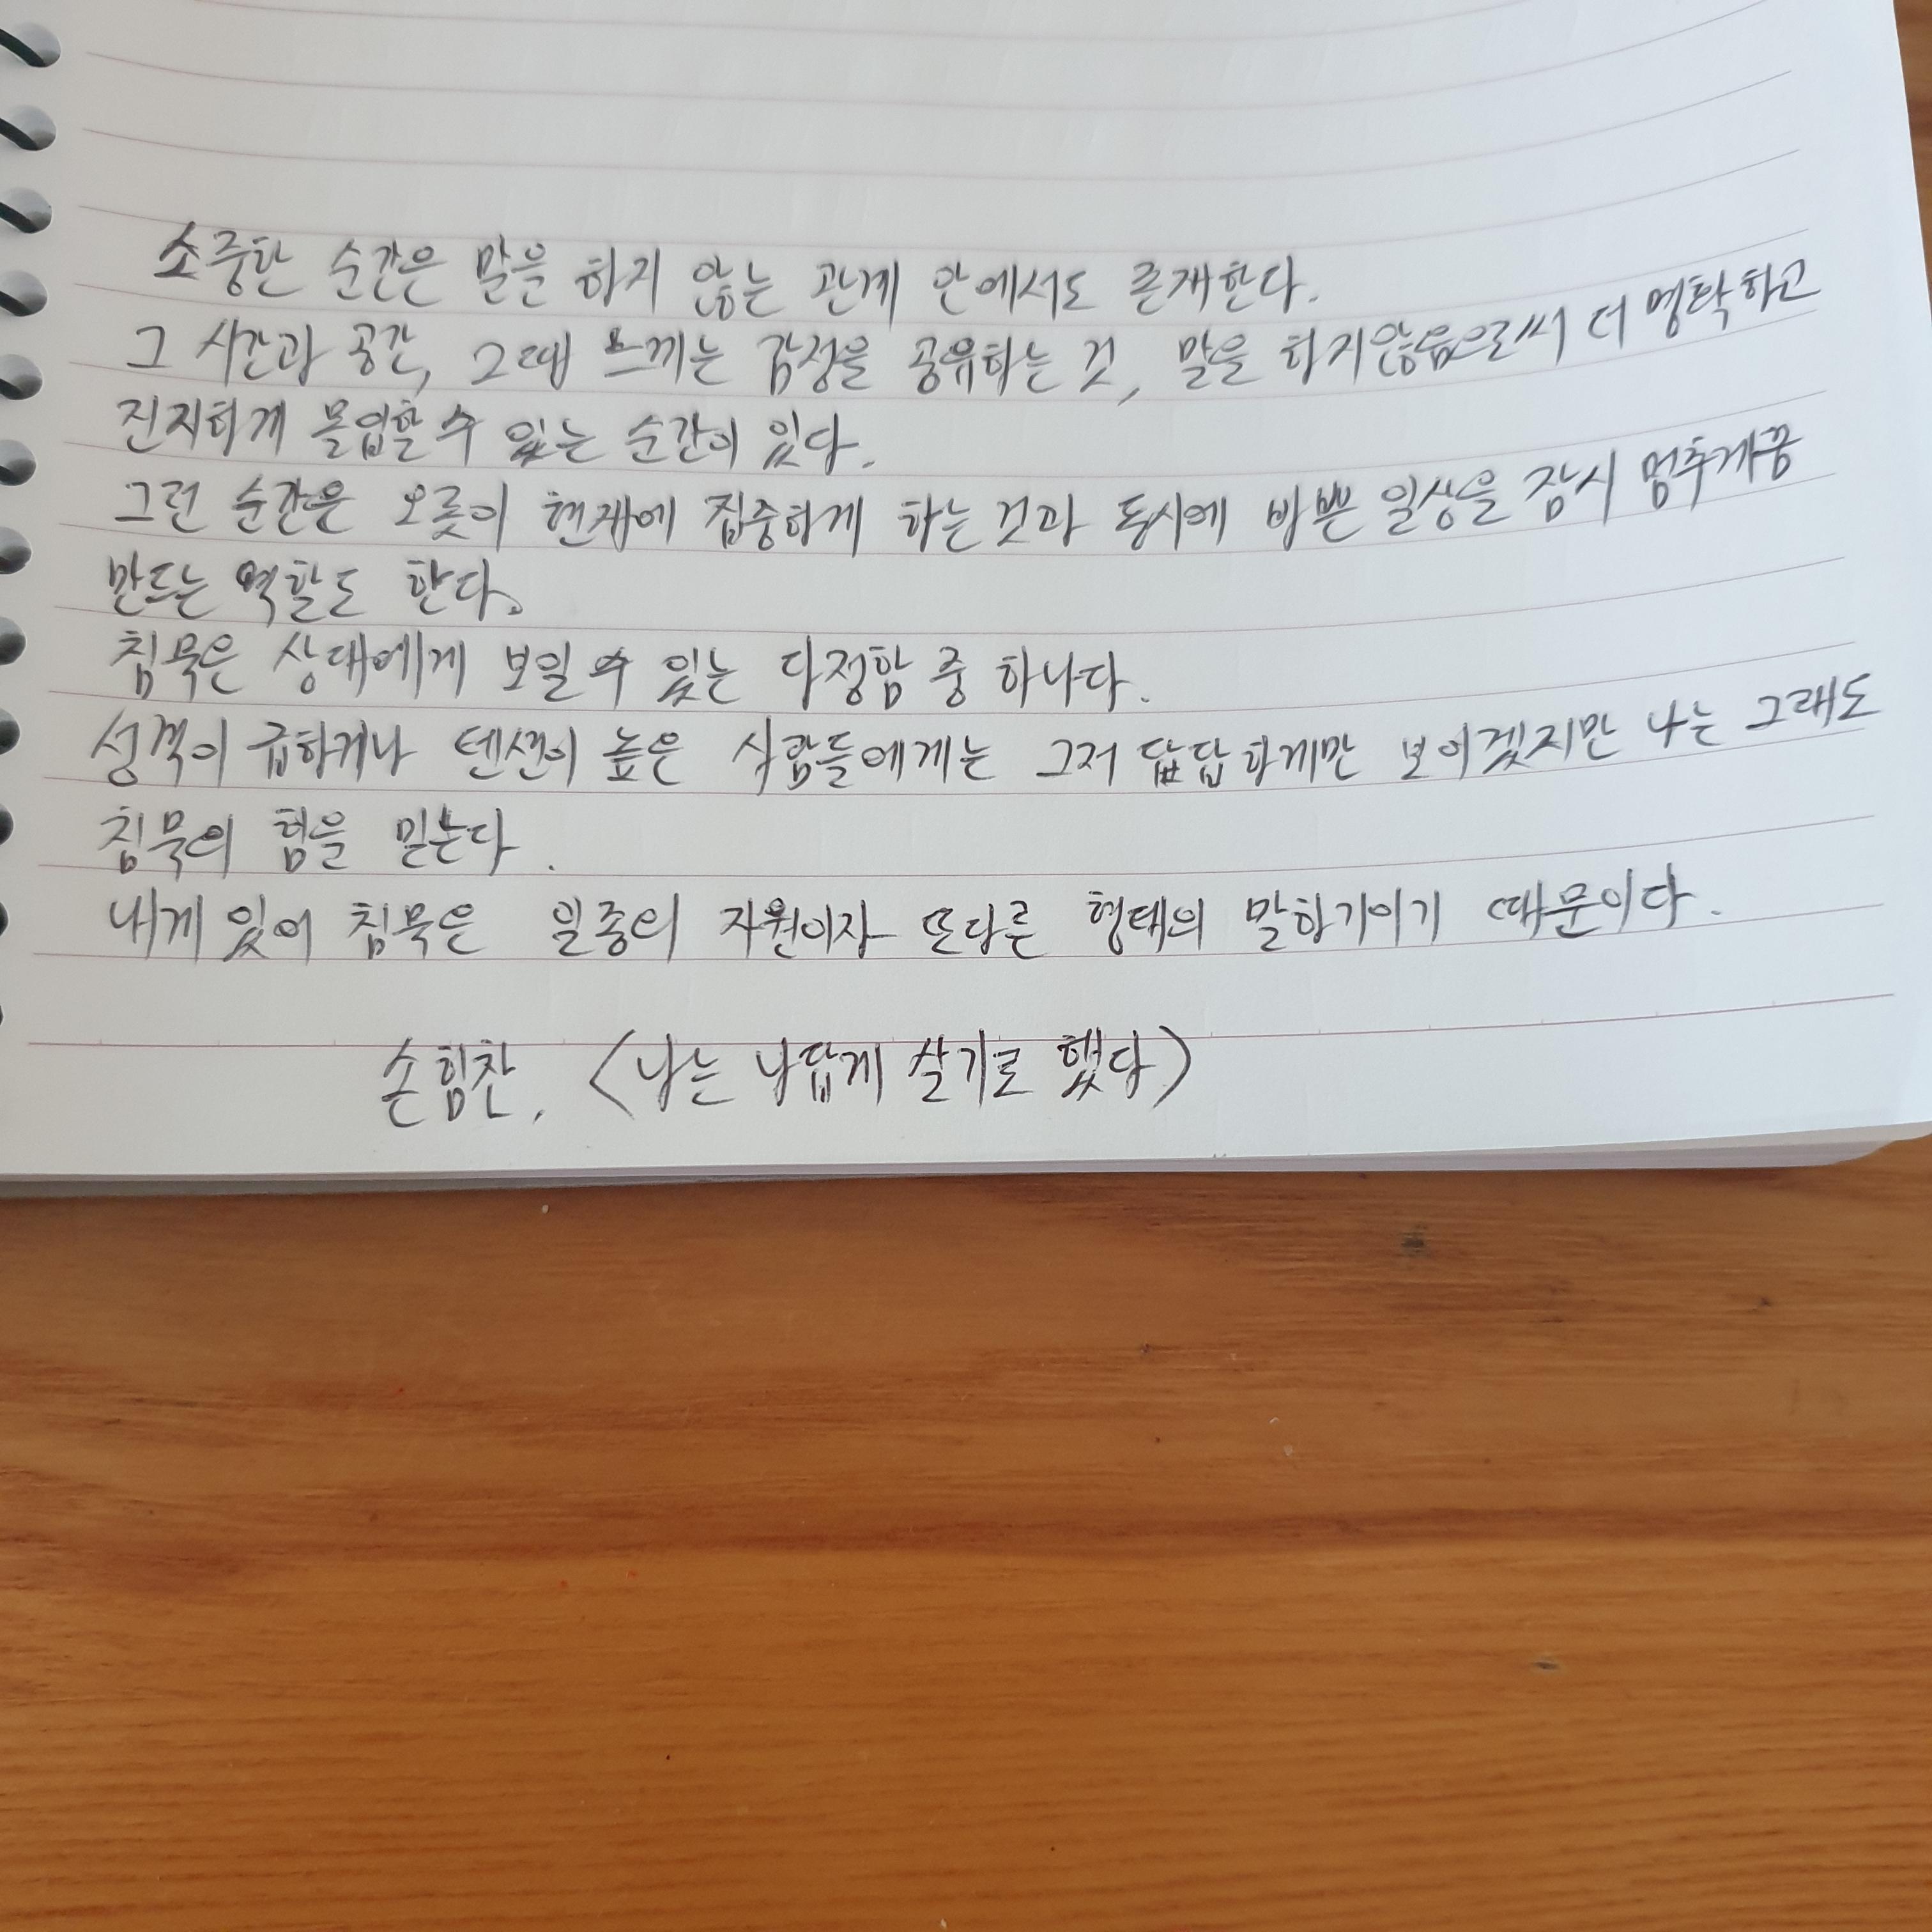 소중한 순간은 말을 하지 않는 관계 안에서도 존재한다.
그 시간과 공간, 그때 느끼는 감정을 공유하는 것, 말을 하지않음으로써 더 명확하고
진지하게 몰입할 수 있는 순간이 있다.
그런 순간은 오롯이 현재에 집중하게 하는 것과 동시에 바쁜 일상을 잠시 멈추게끔
만드는 역할도 한다.
침묵은 상대에게 보일 수 있는 다정함 중 하나다.
성격이 급하거나 텐션이 높은 사람들에게는 그저 답답하게만 보이겠지만 나는 그래도
침묵의 힘을 믿는다.
내게 있어 침묵은 일종의 자원이자 또다른 형태의 말하기이기 때문이다.
손힘찬, <나는 나답게 살기로 했다>